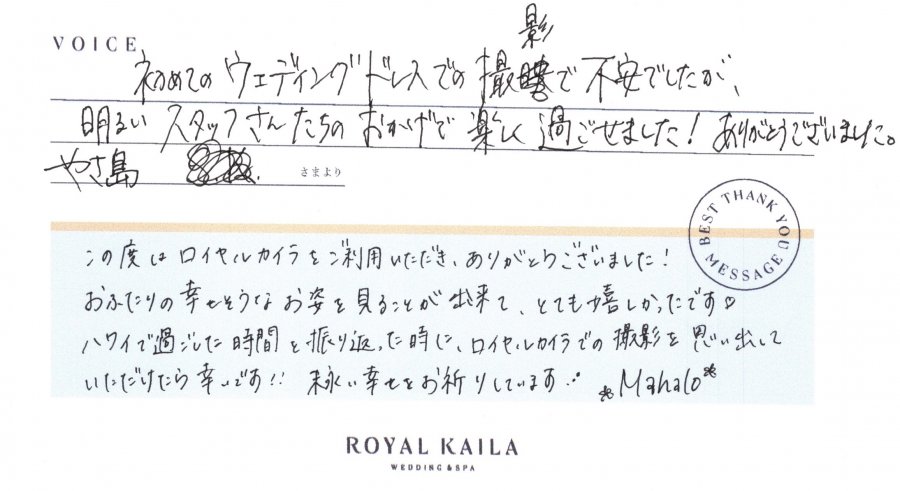 VOICE
初めての ウェディングドレスでの 撮影で 不安でしたが、
明るい スタッフさんたちの おかげで 楽しく 過ごせました! ありがとうございました。
やさ島
さまより
BEST THANK YOU MESSAGE
この度は ロイヤルカイラを ご利用いただき、ありがとうございました!
おふたりの 幸せそうな お姿を 見ることが 出来て、とても嬉しかったです♡
ハワイで過ごした 時間を 振り返った時に、ロイヤルカイラでの 撮影を 思い出して
いただけたら 幸いです!! 末永い 幸せを お祈りしています *Mahalo*
ROYAL KAILA
WEDDING & SPA